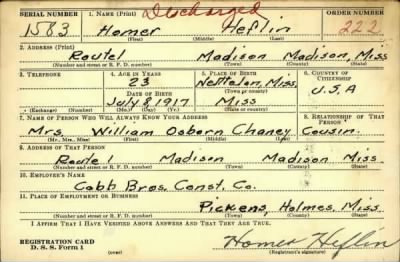 SERIAL NUMBER 1. NAME (Print) Discharged ORDER NUMBER
1583 Homer Heflin 222
(First) (Middle) (Last)
2. ADDRESS (Print)
Route 1 Madison Madison, Miss
(Number and street or R. F. D. number) (Town) (County) (State)
3. TELEPHONE 4. AGE IN YEARS 5. PLACE OF BIRTH 6. COUNTRY OF CITIZENSHIP
23 Nettleton, Miss.
DATE OF BIRTH (Town or county)
July 8, 1917. Miss U.S.A
(Exchange) (Number) (Mo.) (Day) (Yr.) (State or country)
7. NAME OF PERSON WHO WILL ALWAYS KNOW YOUR ADDRESS 8. RELATIONSHIP OF THAT PERSON
Mrs. William Osborn Chaney Cousin.
(Mr., Mrs., Miss) (First) (Middle) (Last)
9. ADDRESS OF THAT PERSON
Route 1 Madison Madison Miss.
(Number and street or R. F. D. number) (Town) (County) (State)
10. EMPLOYER'S NAME
Cobb Bros. Const. Co.
11. PLACE OF EMPLOYMENT OR BUSINESS
Pickens, Holmes, Miss.
(Number and street or R. F. D. number) (Town) (County) (State)
I AFFIRM THAT I HAVE VERIFIED ABOVE ANSWERS AND THAT THEY ARE TRUE.
REGISTRATION CARD
D. S. S. Form 1 (over) Homer Heflin
(Registrant's signature)